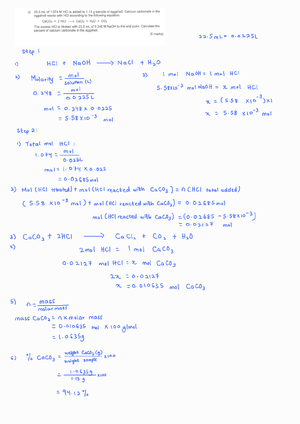 c) 25.0 mL of 1.074 M HCl is added to 1.13 g sample of eggshell. Calcium carbonate in the
eggshell reacts with HCl according to the following equation:
CaCO₃ + 2HCl → CaCl₂ + H₂O + CO₂
The excess HCl is titrated with 22.5 mL of 0.248 M NaOH to the end point. Calculate the
percent of calcium carbonate in the eggshell.
22.5 mL = 0.0225L
Step 1:
1) HCl + NaOH → NaCl + H₂O
2) Molarity = mol / solution (L)
0.248 = mol / 0.0225L
mol = 0.248 × 0.0225
= 5.58 × 10⁻³ mol
3) 1 mol NaOH = 1 mol HCl
5.58×10⁻³ mol NaOH = x mol HCl
x = (5.58 ×10⁻³)×1
x = 5.58 ×10⁻³ mol
Step 2:
1) Total mol HCl :
1.074 = mol / 0.025L
mol = 1.074 × 0.025
= 0.02685 mol
2) Mol (HCl titrated) + mol (HCl reacted with CaCO₃) = n (HCl total added)
(5.58 ×10⁻³ mol) + mol (HCl reacted with CaCO₃) = 0.02685 mol
mol (HCl reacted with CaCO₃) = (0.02685 - 5.58×10⁻³)
= 0.02127 mol
3) CaCO₃ + 2HCl → CaCl₂ + CO₂ + H₂O
4) 2mol HCl = 1 mol CaCO₃
0.02127 mol HCl = x mol CaCO₃
2x = 0.02127
x = 0.010635 mol CaCO₃
5) n = mass / molar mass
mass CaCO₃ = n × molar mass
= 0.010635 mol × 100 g/mol
= 1.0635g
6) % CaCO₃ = weight CaCO₃(g) / weight sample ×100
= 1.0635g / 1.13 g ×100
= 94.12%